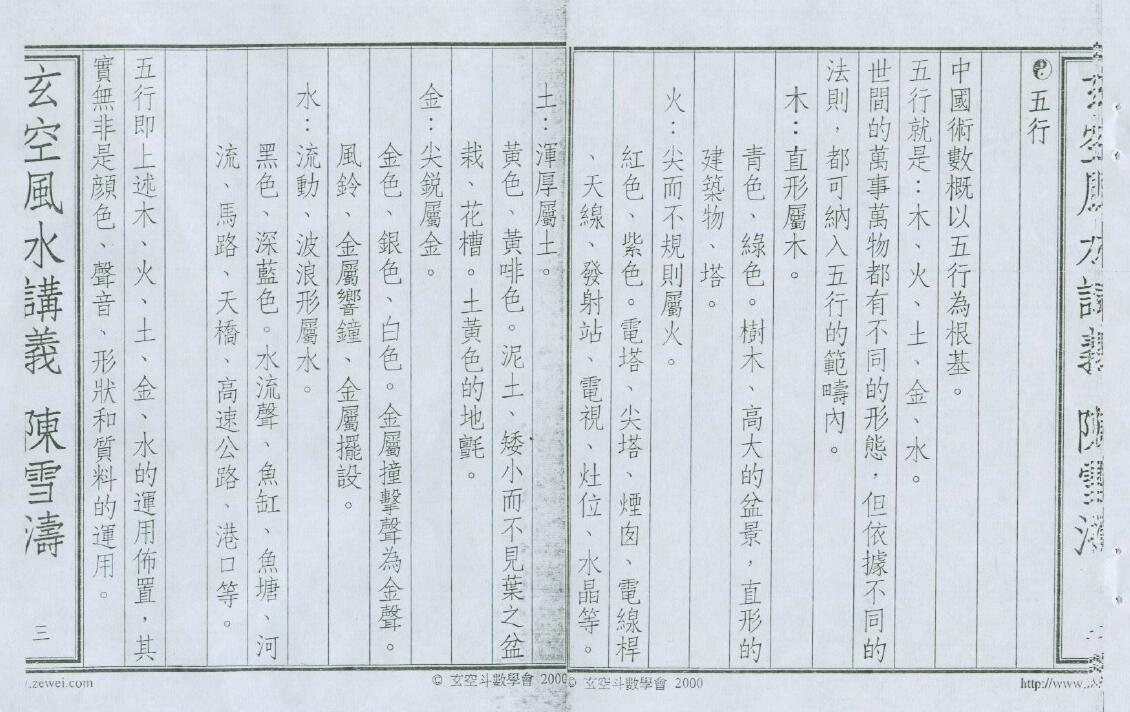 玄空風水講義　陳雪濤
五行
中國術數概以五行為根基。
五行就是：木、火、土、金、水。
世間的萬事萬物都有不同的形態，但依據不同的
法則，都可納入五行的範疇內。
木：直形屬木。
青色、綠色。樹木、高大的盆景，直形的
建築物、塔。
火：尖而不規則屬火。
紅色、紫色。電塔、尖塔、煙囪、電線桿
、天線、發射站、電視、灶位、水晶等。
© 玄空斗數學會 2000
http://www.
土：渾厚屬土。
黃色、黃啡色。泥土、矮小而不見葉之盆
栽、花槽。土黃色的地氈。
金：尖銳屬金。
金色、銀色、白色。金屬撞擊聲為金聲。
風鈴、金屬響鐘、金屬擺設。
水：流動、波浪形屬水。
黑色、深藍色。水流聲、魚缸、魚塘、河
流、馬路、天橋、高速公路、港口等。
五行即上述木、火、土、金、水的運用佈置，其
實無非是顏色、聲音、形狀和質料的運用。
玄空風水講義　陳雪濤
三
.zewei.com
© 玄空斗數學會 2000